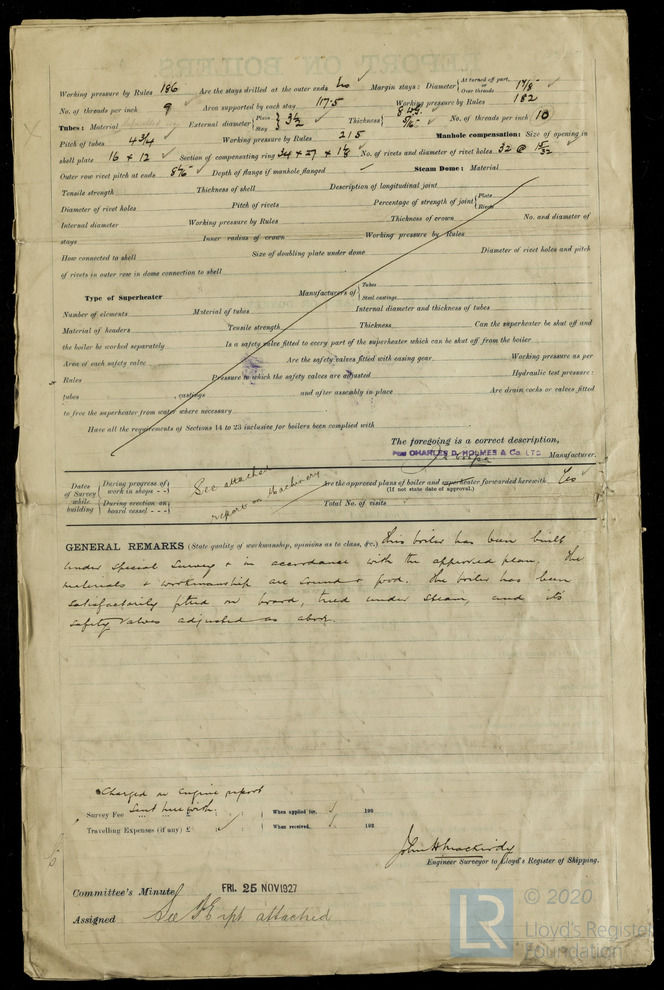 Working pressure by Rules 186 Are the stays drilled at the outer ends No Margin stays: Diameter { At turned off part, or Over threads 1 7/8" ✓
No. of threads per inch 9 Area supported by each stay 117.5 Working pressure by Rules 182
Tubes: Material External diameter { Plain Stay } 3 1/2 Thickness { 8 W.G. 5/16" No. of threads per inch 10
Pitch of tubes 4 3/4 Working pressure by Rules 215 Manhole compensation: Size of opening in
shell plate 16 x 12 Section of compensating ring 34 x 27 x 1 1/8 No. of rivets and diameter of rivet holes 32 @ 15/32
Outer row rivet pitch at ends Depth of flange if manhole flanged Steam Dome: Material
Tensile strength Thickness of shell Description of longitudinal joint
Diameter of rivet holes Pitch of rivets Percentage of strength of joint { Plate Rivets
Internal diameter Working pressure by Rules Thickness of crown No. and diameter of
stays Inner radius of crown Working pressure by Rules
How connected to shell Size of doubling plate under dome Diameter of rivet holes and pitch
of rivets in outer row in dome connection to shell
Type of Superheater Manufacturers of { Tubes Steel castings
Number of elements Material of tubes Internal diameter and thickness of tubes
Material of headers Tensile strength Thickness Can the superheater be shut off and
the boiler be worked separately Is a safety valve fitted to every part of the superheater which can be shut off from the boiler
Area of each safety valve Are the safety valves fitted with easing gear Working pressure as per
Rules Pressure to which the safety valves are adjusted Hydraulic test pressure:
tubes , castings and after assembly in place Are drain cocks or valves fitted
to free the superheater from water where necessary
Have all the requirements of Sections 14 to 23 inclusive for boilers been complied with
The foregoing is a correct description,
FOR CHARLES D. HOLMES & Co. LTD Manufacturer.
Dates of Survey while building { During progress of work in shops - - During erection on board vessel - - - } See attached report on Machinery
Are the approved plans of boiler and superheater forwarded herewith Yes
(If not state date of approval.)
Total No. of visits
GENERAL REMARKS (State quality of workmanship, opinions as to class, &c.) This boiler has been built
under special survey & in accordance with the approved plan. The
materials & workmanship are sound & good. The boiler has been
satisfactorily fitted on board, tried under steam, and its
safety valves adjusted as above.
Charged on Engine report
sent herewith.
Survey Fee ... ... £ When applied for, 192
Travelling Expenses (if any) £ When received, 192
John H Mackirdy
Engineer Surveyor to Lloyd's Register of Shipping.
Committee's Minute FRI. 25 NOV 1927
Assigned See F.E. rpt attached
LR © 2020
Lloyd's Register
Foundation